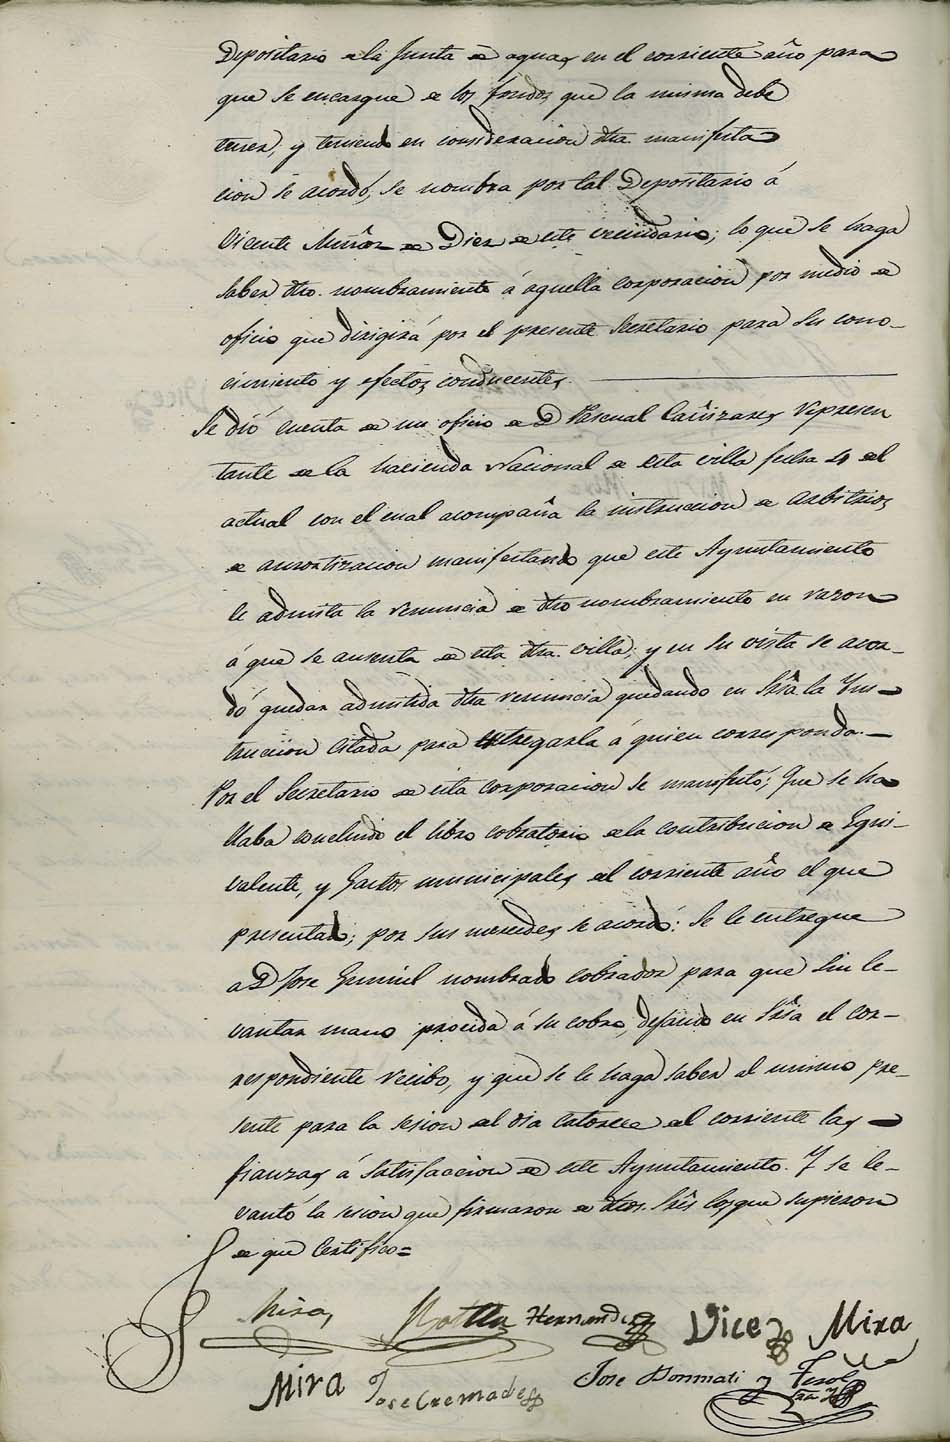 Depositario de la Junta de aguas en el corriente año para
que se encargue de los fondos que la misma debe
tener, y teniendo en consideracion dha. manifesta
cion se acordó, se nombra por tal Depositario á
Vicente Muñoz de Diez de este vecindario; lo que se haga
saber dho. nombramiento á aquella corporacion por medio de
oficio que dirigirá por el presente Secretario para su cono-
cimiento y efectos conducentes
Se dió cuenta de un oficio de D Pascual Cañizares Represen
tante de la hacienda Nacional de esta villa fecha 4 del
actual con el cual acompaña la instruccion de Arbitrios
de amortizacion manifestando que este Ayuntamiento
le admita la renuncia de dho nombramiento en razon
á que se ausenta de esta dha. villa; y en su vista se acor-
dó quedar admitida dha renuncia quedando en Sría la Yns-
truccion citada para entregarla á quien corresponda.
Por el Secretario de esta corporacion se manifestó; Que se ha
llaba concluido el libro cobratorio de la contribucion de Equi-
valente, y Gastos municipales del corriente año el que
presentado; por sus mercedes se acordó: Se le entregue
a D Jose Gumiel nombrado cobrador para que sin le-
vantar mano proceda á su cobro, dejando en Sría el cor-
respondiente recibo, y que se le haga saber al mismo pre-
sente para la sesion del dia catorce del corriente las
fianzas á satisfaccion de este Ayuntamiento. Y se le-
vantó la sesion que firmaron de dhos. Sres los que supieron
de que Certifico=
Mira Hernandez Vicedo Mira
Mira Jose Cremades Jose Bonmati y